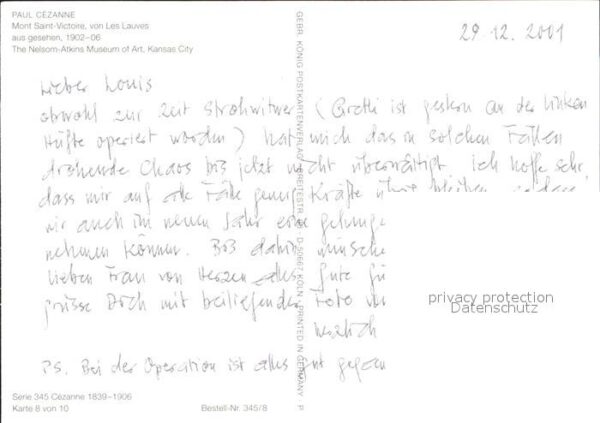 PAUL CÉZANNE
Mont Saint-Victoire, von Les Lauves
aus gesehen, 1902–06
The Nelsom-Atkins Museum of Art, Kansas City
29.12.2001
Lieber Louis
obwohl zur Zeit Strohwitwer (Gretli ist gestern an der linken
Hüfte operiert worden) hat mich das in solchen Fällen
drohende Chaos bis jetzt nicht überwältigt. Ich hoffe sehr,
dass mir auf alle Fälle genug Kräfte
wir auch im neuen Jahr eine
nehmen können. Bis dahin wünsche
lieben Frau von Herzen alles Gute für
grüsse Dich mit beiliegendem Foto
herzlich
PS. Bei der Operation ist alles gut gegan
GEBR. KÖNIG POSTKARTENVERLAG · BREITESTR. · D-50667 KÖLN · PRINTED IN GERMANY
privacy protection
Datenschutz
Serie 345 Cézanne 1839–1906
Karte 8 von 10
Bestell-Nr. 345/8